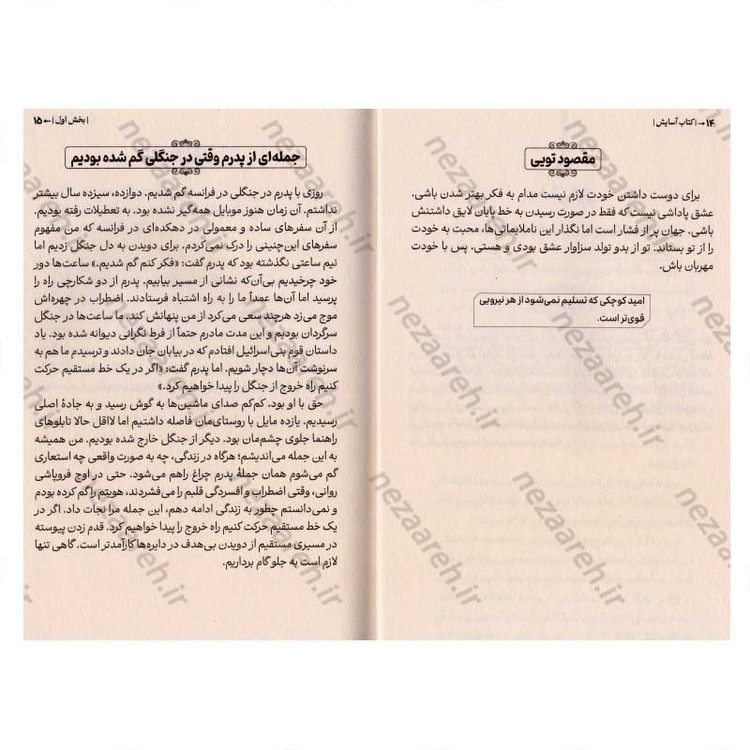 ۱۴ → | کتاب آسایش |
مقصود تویی
برای دوست داشتن خودت لازم نیست مدام به فکر بهتر شدن باشی.
عشق پاداشی نیست که فقط در صورت رسیدن به خط پایان لایق داشتنش
باشی. جهان پر از فشار است اما نگذار این ناملایماتی‌ها، محبت به خودت
را از تو بستاند. تو از بدو تولد سزاوار عشق بودی و هستی. پس با خودت
مهربان باش.
امید کوچکی که تسلیم نمی‌شود از هر نیرویی
قوی‌تر است.
| بخش اول | ← ۱۵
جمله‌ای از پدرم وقتی در جنگلی گم شده بودیم
روزی با پدرم در جنگلی در فرانسه گم شدیم. دوازده، سیزده سال بیشتر
نداشتم. آن زمان هنوز موبایل همه‌گیر نشده بود. به تعطیلات رفته بودیم.
از آن سفرهای ساده و معمولی در دهکده‌ای در فرانسه که من مفهوم
سفرهای این‌چنینی را درک نمی‌کردم. برای دویدن به دل جنگل زدیم اما
نیم ساعتی نگذشته بود که پدرم گفت: «فکر کنم گم شدیم.» ساعت‌ها دور
خود چرخیدیم بی‌آن‌که نشانی از مسیر بیابیم. پدرم از دو شکارچی راه را
پرسید اما آن‌ها عمداً ما را به راه اشتباه فرستادند. اضطراب در چهره‌اش
موج می‌زد هرچند سعی می‌کرد از من پنهانش کند. ما ساعت‌ها در جنگل
سرگردان بودیم و این مدت مادرم حتماً از فرط نگرانی دیوانه شده بود. یاد
داستان قوم بنی‌اسرائیل افتادم که در بیابان جان دادند و ترسیدم ما هم به
سرنوشت آن‌ها دچار شویم. اما پدرم گفت: «اگر در یک خط مستقیم حرکت
کنیم راه خروج از جنگل را پیدا خواهیم کرد.»
حق با او بود. کم‌کم صدای ماشین‌ها به گوش رسید و به جادهٔ اصلی
رسیدیم. یازده مایل با روستای‌مان فاصله داشتیم اما لااقل حالا تابلوهای
راهنما جلوی چشم‌مان بود. دیگر از جنگل خارج شده بودیم. من همیشه
به این جمله می‌اندیشم؛ هرگاه در زندگی، چه به صورت واقعی چه استعاری
گم می‌شوم همان جملهٔ پدرم چراغ راهم می‌شود. حتی در اوج فروپاشی
روانی، وقتی اضطراب و افسردگی قلبم را می‌فشردند، هویتم را گم کرده بودم
و نمی‌دانستم چطور به زندگی ادامه دهم، این جمله مرا نجات داد. اگر در
یک خط مستقیم حرکت کنیم راه خروج را پیدا خواهیم کرد. قدم زدن پیوسته
در مسیری مستقیم از دویدن بی‌هدف در دایره‌ها کارآمدتر است. گاهی تنها
لازم است به جلو گام برداریم.
nezaareh.ir